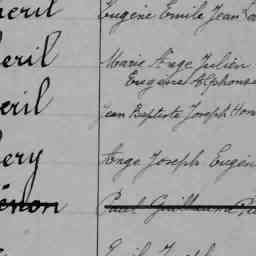 Eugène Emile Jean
eril
Marie Ange Julien
Eugène Alphonse
eril
Jean Baptiste Joseph Hon
ery
Ange Joseph Eugèn
énon
Paul Guillaume